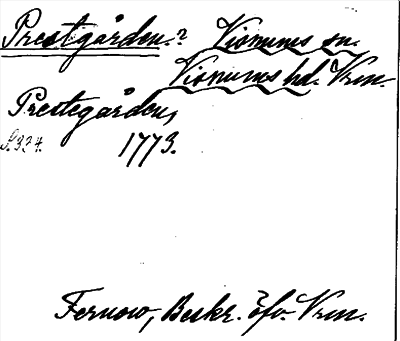 Prestgården? Visnums sn.
Visnums hd. Vrm.
Prestegården,
S. 324. 1773.
Fernow, Beskr. öfv. Vrm.